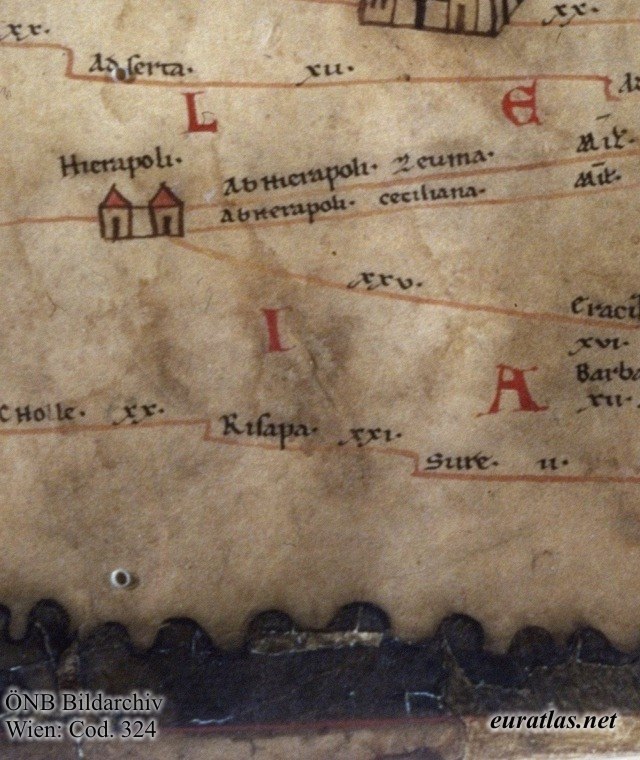 xx.
xx.
Ad serta. xii.
L E
Hierapoli.
Ab Hierapoli. Zeuma.
Ab Herapoli. ceciliana.
xxv.
xvi.
I
A
xii.
xx.
Risapa. xxi.
Sure. ii.
ÖNB Bildarchiv
Wien: Cod. 324
euratlas.net